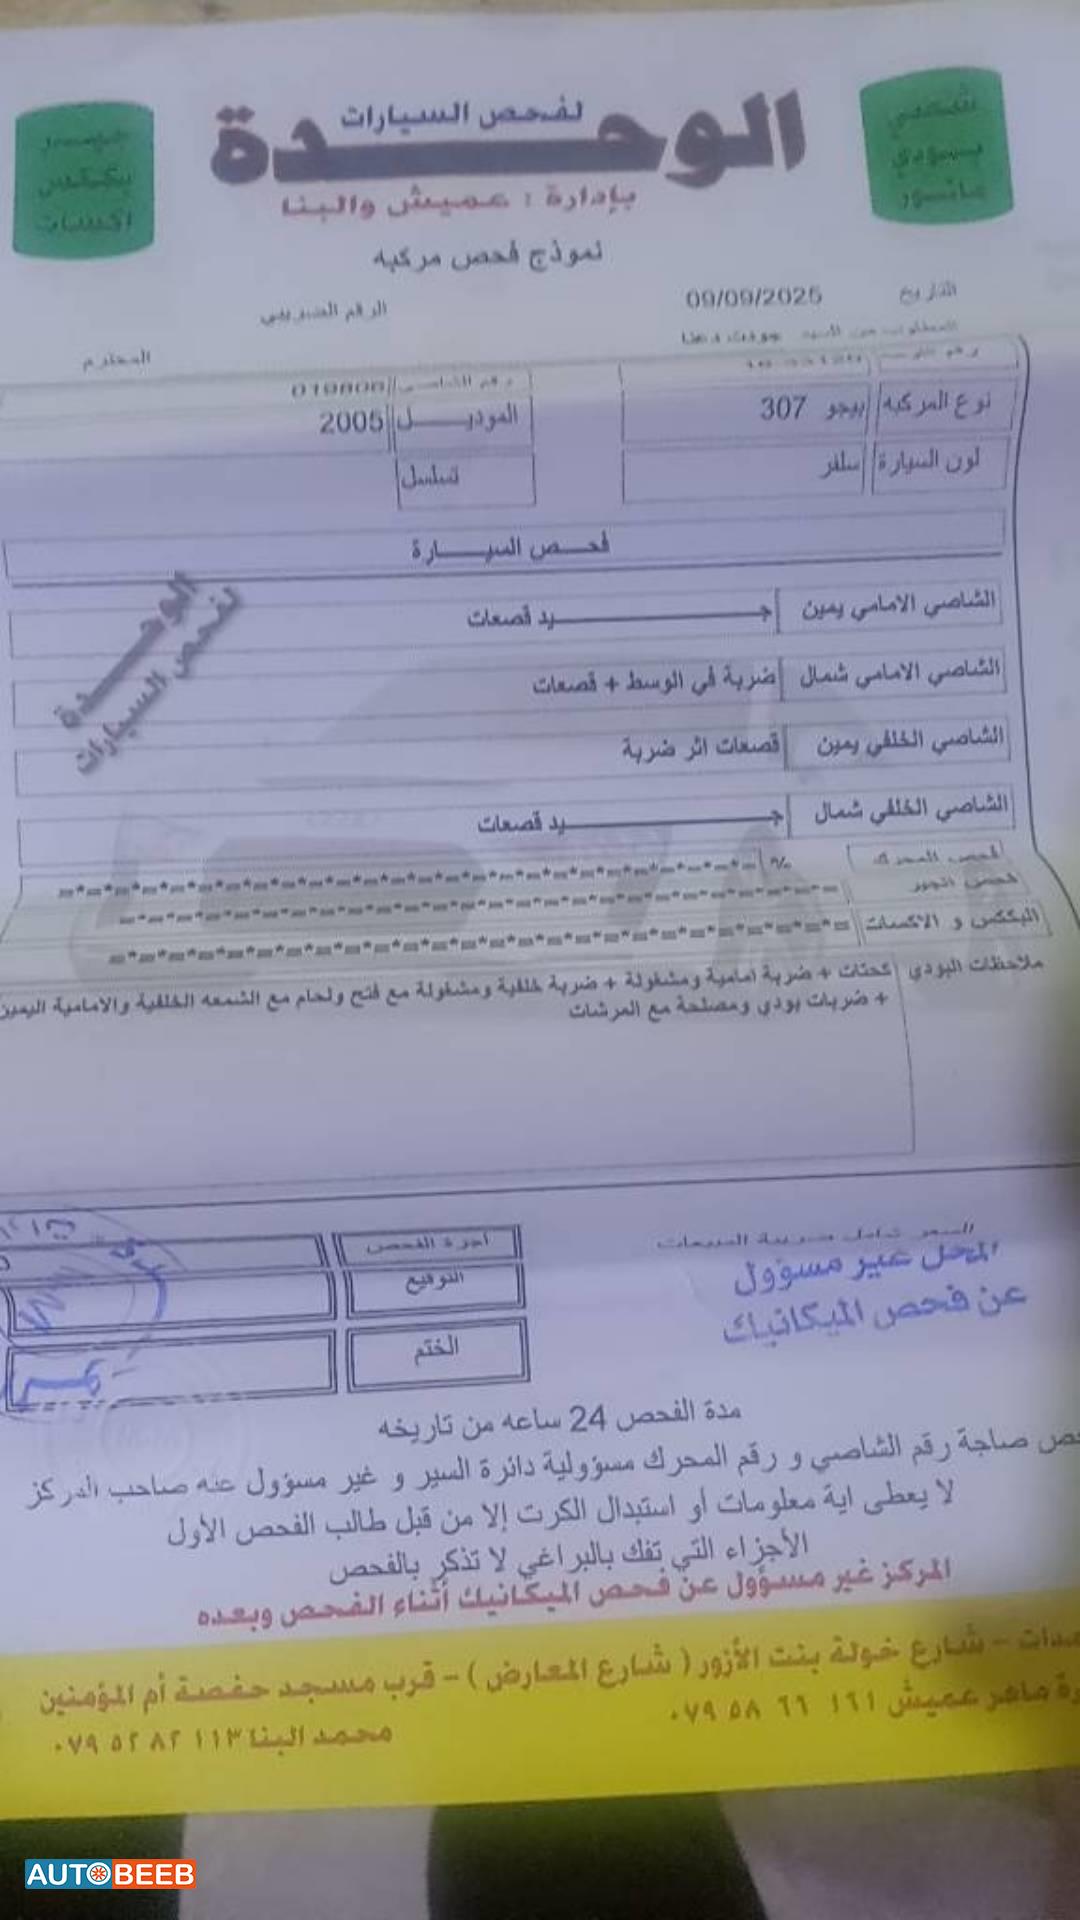 شصي
بودي
ماتور
لفحص السيارات
الوحدة
بكس
اكسات
بإدارة : عميش والبنا
نموذج فحص مركبه
التاريخ 09/09/2025 الرقم الضريبي
المحترم
رقم الشاصي 019808
نوع المركبه بيجو 307 الموديل 2005
لون السيارة سلفر تسلسل
فحص السيارة
الشاصي الامامي يمين جيد قصعات
الشاصي الامامي شمال ضربة في الوسط + قصعات
الشاصي الخلفي يمين قصعات اثر ضربة
الشاصي الخلفي شمال جيد قصعات
الوحدة
لفحص السيارات
فحص المحرك %
فحص الجير
البكس و الاكسات
ملاحظات البودي كحتات + ضربة امامية ومشغولة + ضربة خلفية ومشغولة مع فتح ولحام مع الشمعه الخلفية والامامية اليمين
+ ضربات بودي ومصلحة مع المرشات
السعر شامل ضريبة المبيعات
المحل غير مسؤول
عن فحص الميكانيك
اجرة الفحص
التوقيع
الختم
مدة الفحص 24 ساعه من تاريخه
صاجة رقم الشاصي و رقم المحرك مسؤولية دائرة السير و غير مسؤول عنه صاحب المركز
لا يعطى اية معلومات أو استبدال الكرت إلا من قبل طالب الفحص الأول
الأجزاء التي تفك بالبراغي لا تذكر بالفحص
المركز غير مسؤول عن فحص الميكانيك أثناء الفحص وبعده
شارع خولة بنت الأزور ( شارع المعارض ) - قرب مسجد حفصة أم المؤمنين
ماهر عميش ٠٧٩ ٥٨ ٦٦ ١٦١ محمد البنا ٠٧٩ ٥٢ ٨٢ ١١٣
AUTOBEEB